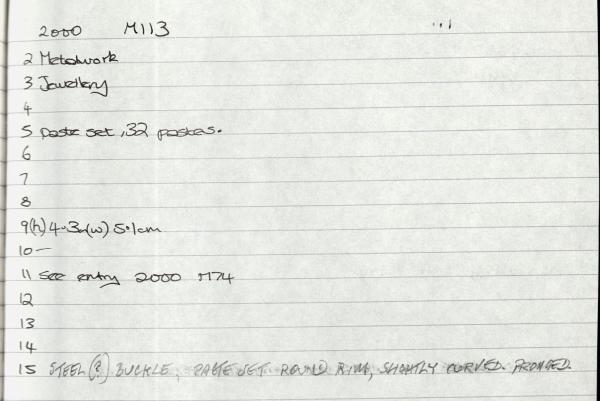 2000 M113
2 Metalwork
3 Jewellery
4
5 paste set, 32 pastes.
6
7
8
9 (h) 4.3 (w) 5.1cm
10 —
11 See entry 2000 M74
12
13
14
15 STEEL (?) BUCKLE, PASTE SET ROUND RIM, SLIGHTLY CURVED. PRONGED.